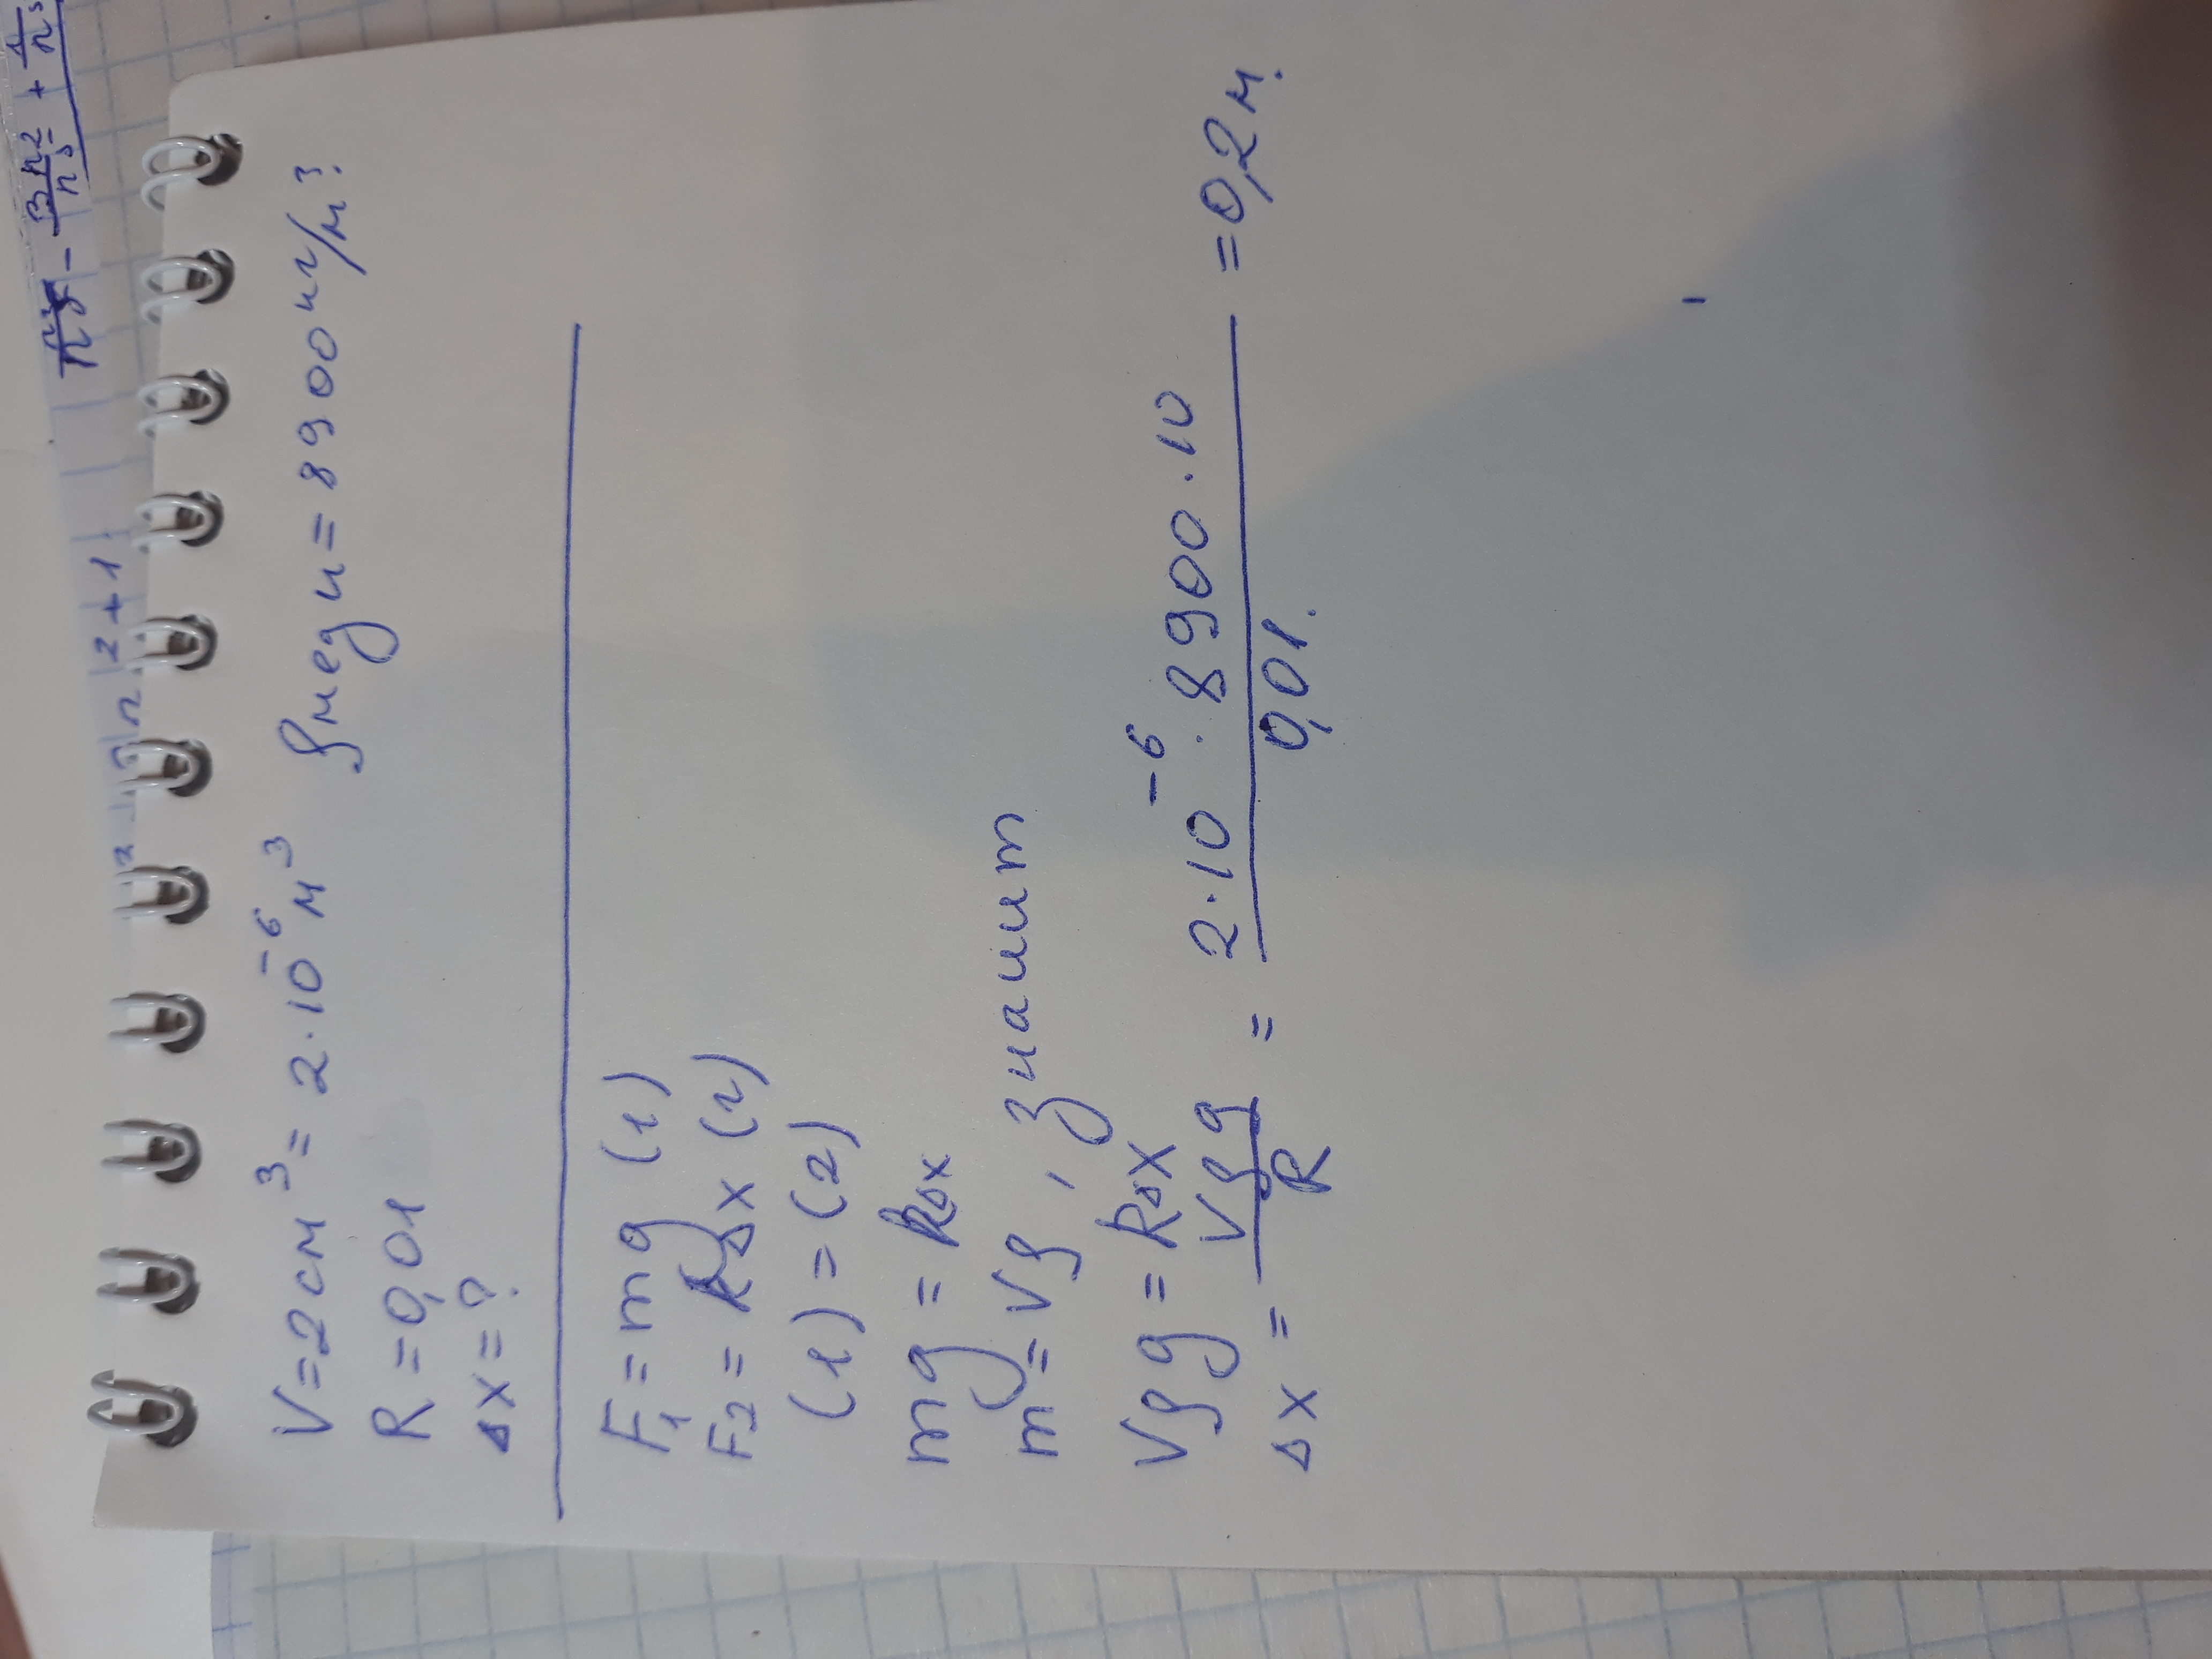 V = 2 см³ = 2·10⁻⁶ м³   ρмеди = 8900 кг/м³.
R = 0,01
Δx = ?
F₁ = mg (1)
F₂ = kΔx (2)
(1) = (2)
mg = kΔx
m = Vρ, значит
Vρg = RΔx
Δx = Vρg/R = 2·10⁻⁶·8900·10/0,01. = 0,2 м.